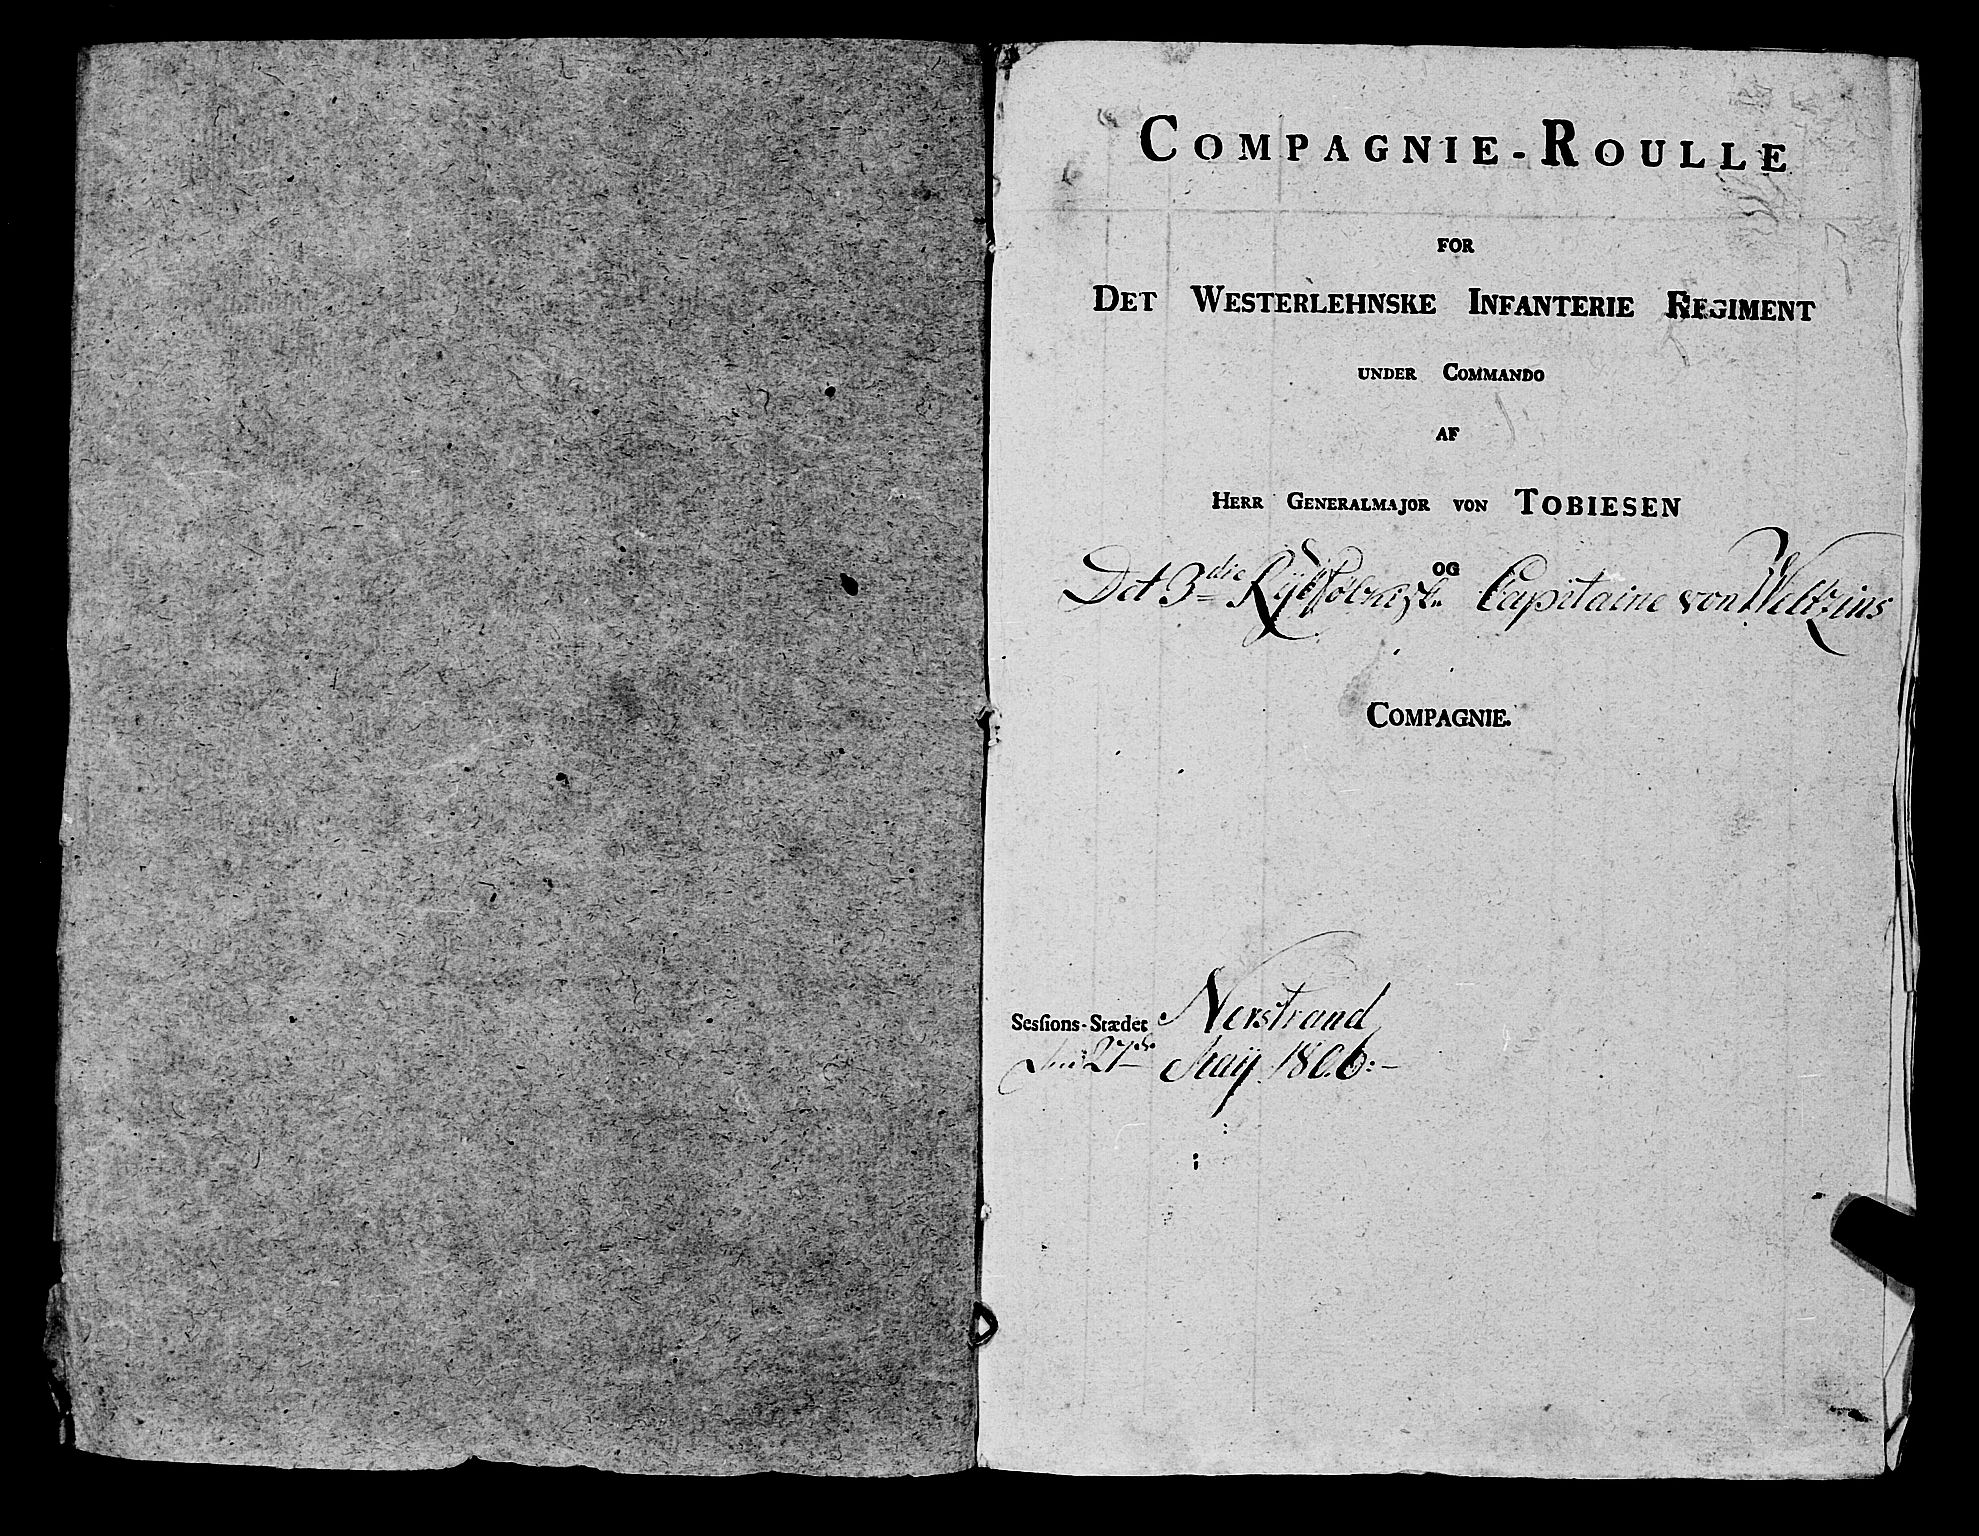 COMPAGNIE-ROULLE
FOR
DET WESTERLEHNSKE INFANTERIE REGIMENT
UNDER COMMANDO
AF
HERR GENERALMAJOR VON TOBIESEN
OG
Det 3die Capitaine von Weltzins
COMPAGNIE.
Sesſions-Stædet Nerstrand
den 27de Maÿ 1806:-